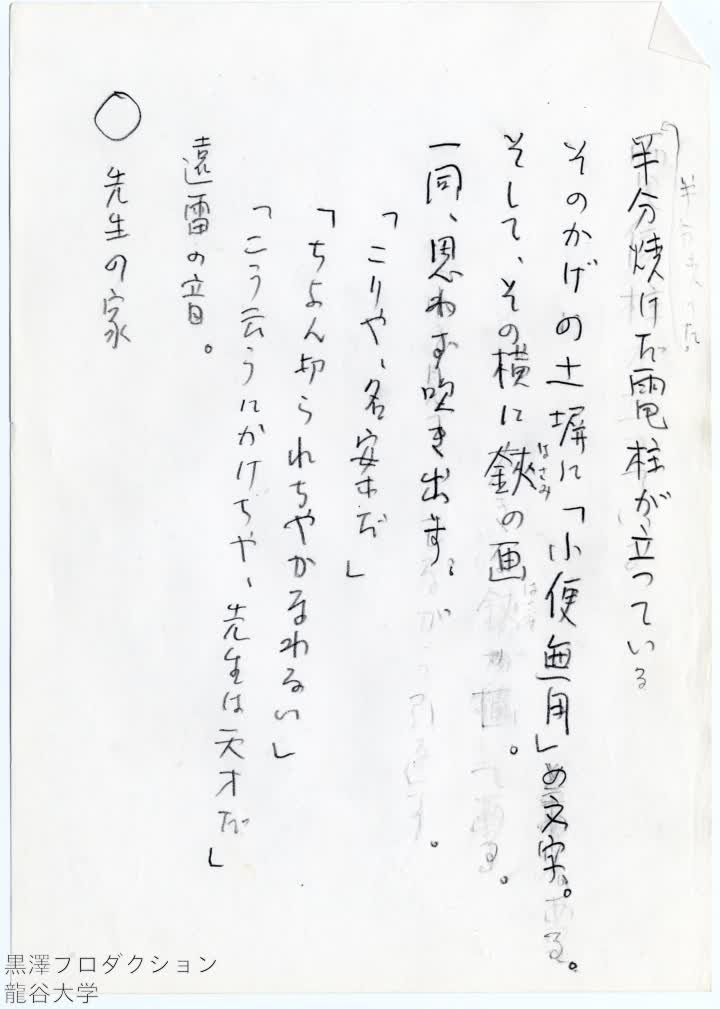 半分焼けた電柱が立っている
そのかげの土塀に「小便無用」の文字。
そして、その横に鋏の画。
はさみ
一同、思わず吹き出す。
「こりゃ、名案だ」
「ちょん切られちゃかなわない」
「こう云うにかけちゃ、先生は天才だ」
遠雷の音。
○ 先生の家
黒澤プロダクション
龍谷大学